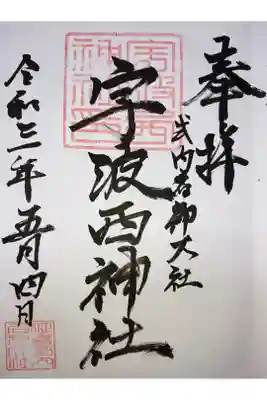 奉拝
式内名神大社
宇波西神社
令和三年五月四日
宇波西
神社印